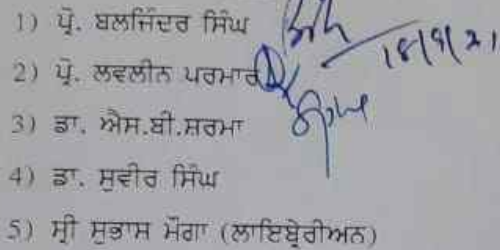 1) ਪ੍ਰੋ. ਬਲਜਿੰਦਰ ਸਿੰਘ
18/9/21
2) ਪ੍ਰੋ. ਲਵਲੀਨ ਪਰਮਾਰ
3) ਡਾ. ਐਸ.ਬੀ.ਸ਼ਰਮਾ
4) ਡਾ. ਸੁਵੀਰ ਸਿੰਘ
5) ਸ੍ਰੀ ਸੁਭਾਸ ਮੌਗਾ (ਲਾਇਬ੍ਰੇਰੀਅਨ)